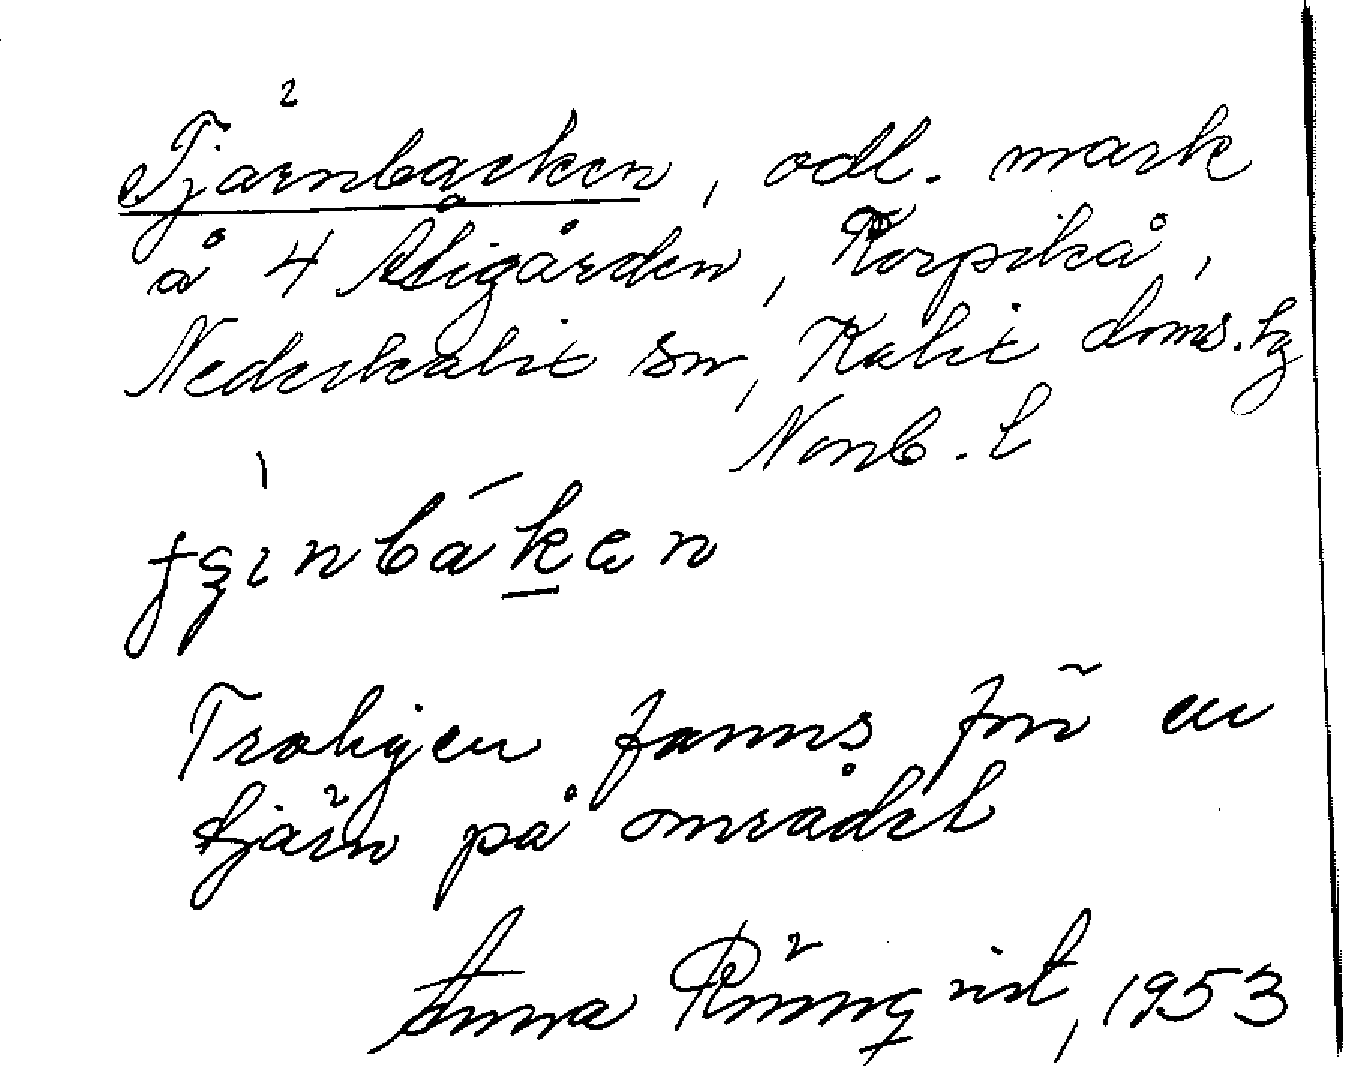 Tjärnbacken, odl. mark
å 4 Åligården, Korpikå,
Nederkalix sn, Kalix doms.hg
Norrb. l
Troligen fanns förr en
tjärn på området
Anna Rönnqvist, 1953